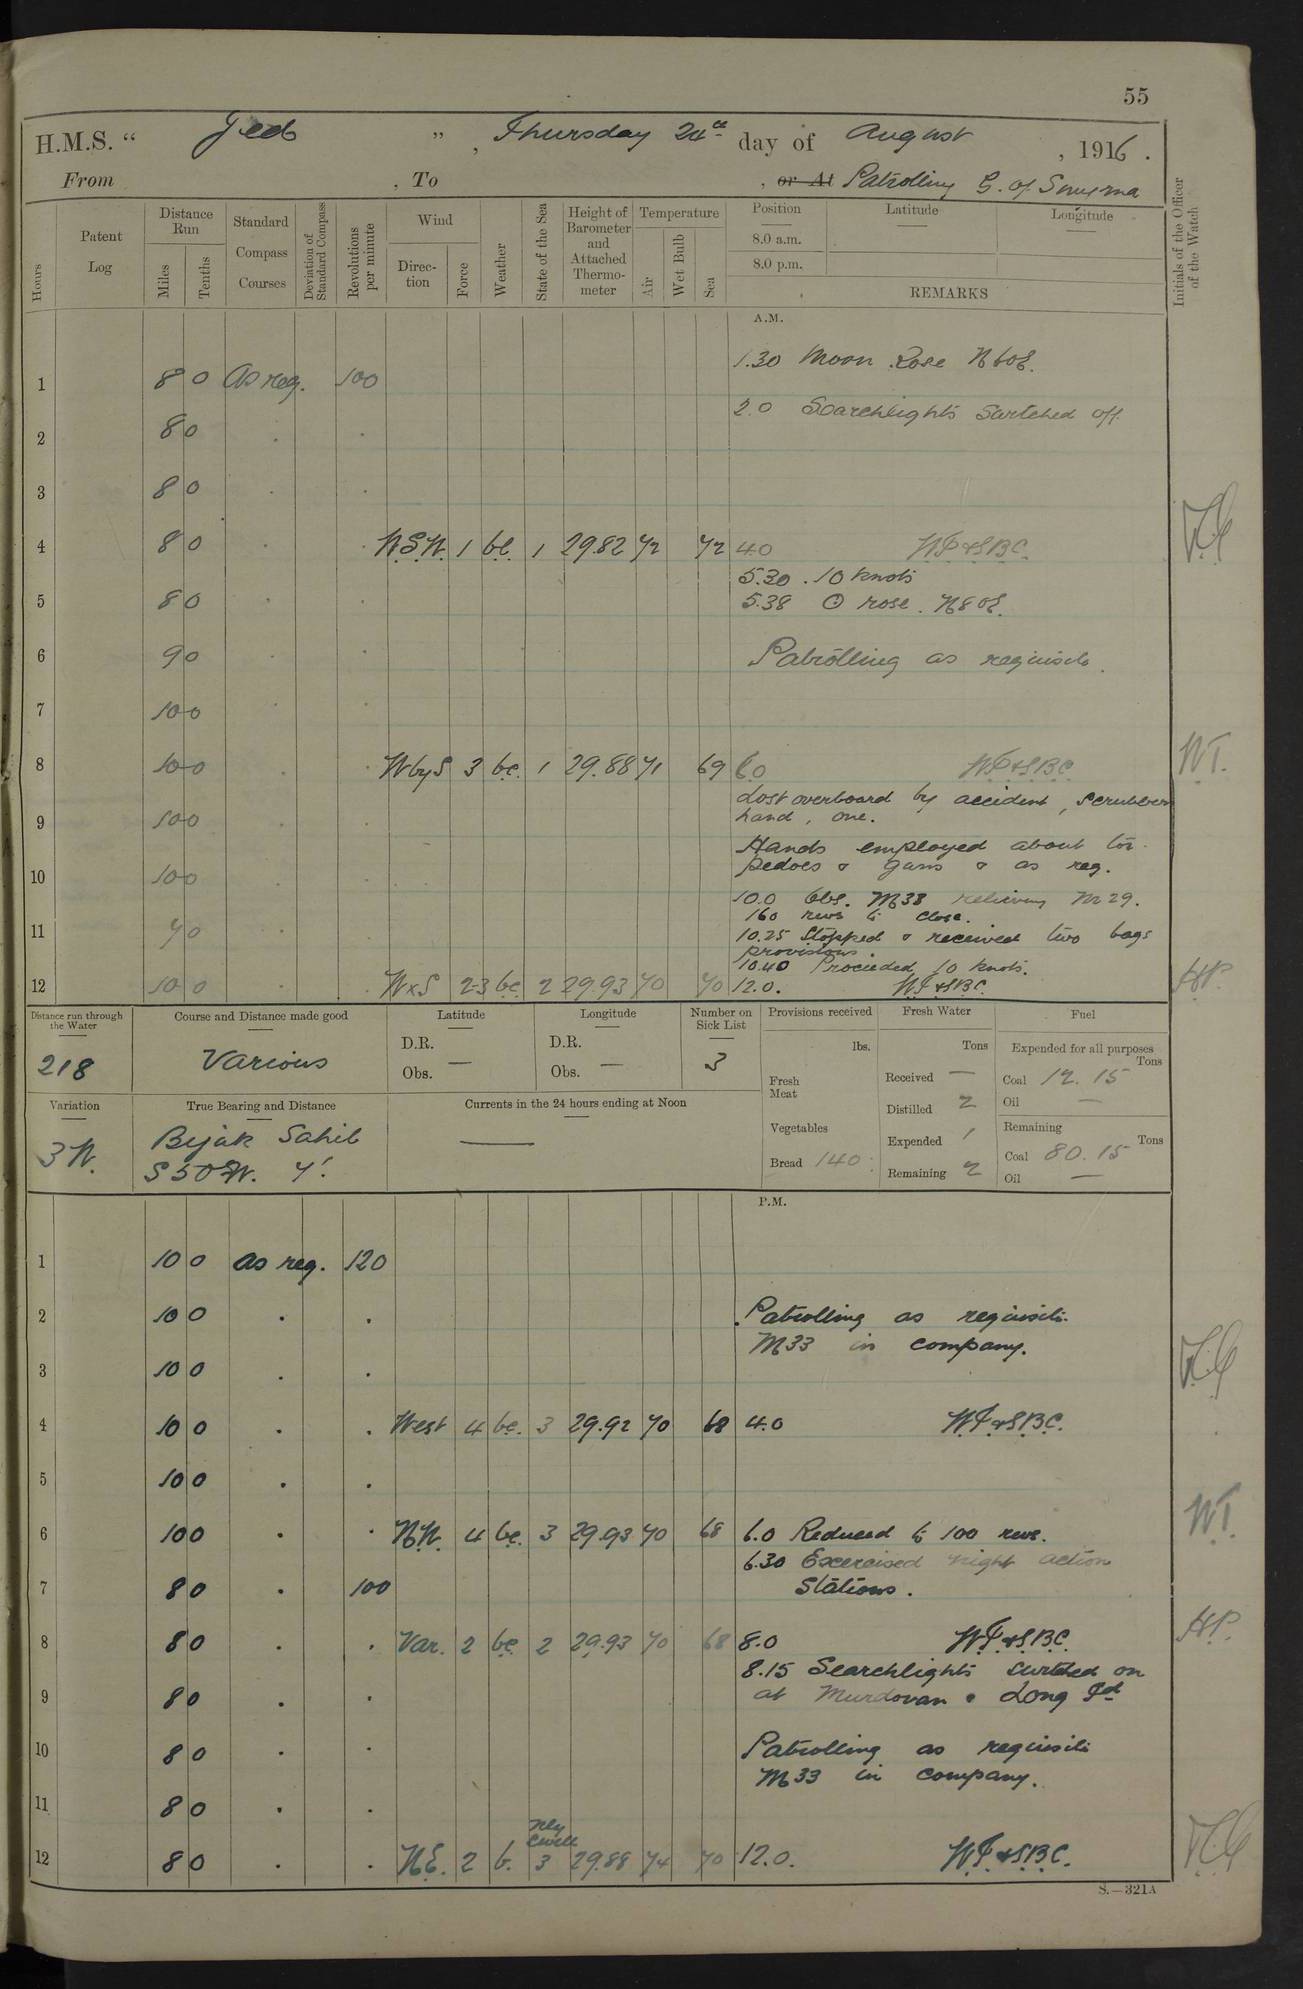 55
H.M.S. “ Jed ” , Thursday 24th day of August , 1916 .
From , To , or At Patrolling G. of Smyrna
Hours
Patent Log
Distance Run
Miles
Tenths
Standard Compass Courses
Deviation of Standard Compass
Revolutions per minute
Wind
Direc- tion
Force
Weather
State of the Sea
Height of Barometer and Attached Thermo- meter
Temperature
Air
Wet Bulb
Sea
Position
8.0 a.m.
8.0 p.m.
Latitude
Longitude
REMARKS
Initials of the Officer of the Watch
A.M.
1.30 Moon Rose N60E.
1 8 0 As req. 100
2.0 Searchlights Switched off
2 8 0 . .
3 8 0 . .
4 8 0 . . W.S.W. 1 bc. 1 29.82 72 72 4.0 W.T.&S.B.C.
5.30 . 10 knots
5 8 0 . . 5.38 ☉ rose . N80E.
6 9 0 . . Patrolling as requisite.
7 10 0 . .
8 10 0 . . WbyS 3 b.c. 1 29.88 71 69 W.T.&S.B.C. W.T.
Lost overboard by accident, scrubbers
9 10 0 . . hand, one.
Hands employed about tor-
pedoes & guns & as req.
10 10 0 . .
10.0 Obs. M33 relieving M29.
160 revs to close.
11 7 0 . . 10.25 Stopped & received two bags
provisions.
10.40 Proceeded 10 knots.
12 10 0 . . WxS 2-3 bc 2 29.93 70 70 12.0. W.T.&S.B.C. H.P.
Distance run through the Water
218
Course and Distance made good
Various
Latitude
D.R.
Obs. —
Longitude
D.R.
Obs. —
Number on Sick List
3
Provisions received
lbs.
Fresh Meat
Vegetables
Bread 140
Fresh Water
Tons
Received —
Distilled 2
Expended 1
Remaining 2
Fuel
Expended for all purposes
Tons
Coal 12.15
Oil —
Remaining
Tons
Coal 80.15
Oil —
Variation
3W.
True Bearing and Distance
Bejak Sahib
S50W. 7'.
Currents in the 24 hours ending at Noon
—
P.M.
1 10 0 as req. 120
2 10 0 . . Patrolling as requisite.
M33 in company.
3 10 0 . .
4 10 0 . . West 4 bc. 3 29.92 70 68 4.0 W.T.&S.B.C.
5 10 0 . .
6 10 0 . . N.W. 4 bc. 3 29.93 70 68 6.0 Reduced to 100 revs. W.T.
6.30 Excercised night action
7 8 0 . 100 Stations.
8 8 0 . . Var. 2 bc 2 29.93 70 68 8.0 W.T.&S.B.C. H.P.
8.15 Searchlights switched on
9 8 0 . . at Murdovan & Long Id
10 8 0 . . Patrolling as requisite
M33 in company.
11 8 0 . .
Nly
swell
12 8 0 . . N.E. 2 b. 3 29.88 74 70 12.0. W.T.&S.B.C.
S.—321A